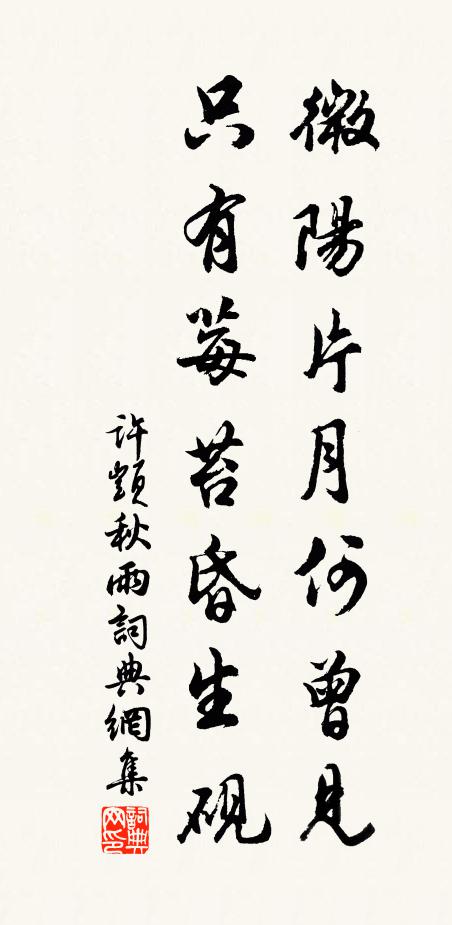 微陽片月何曾見
只有莓苔昏生硯
許顗秋雨詞典網集
詞典网印